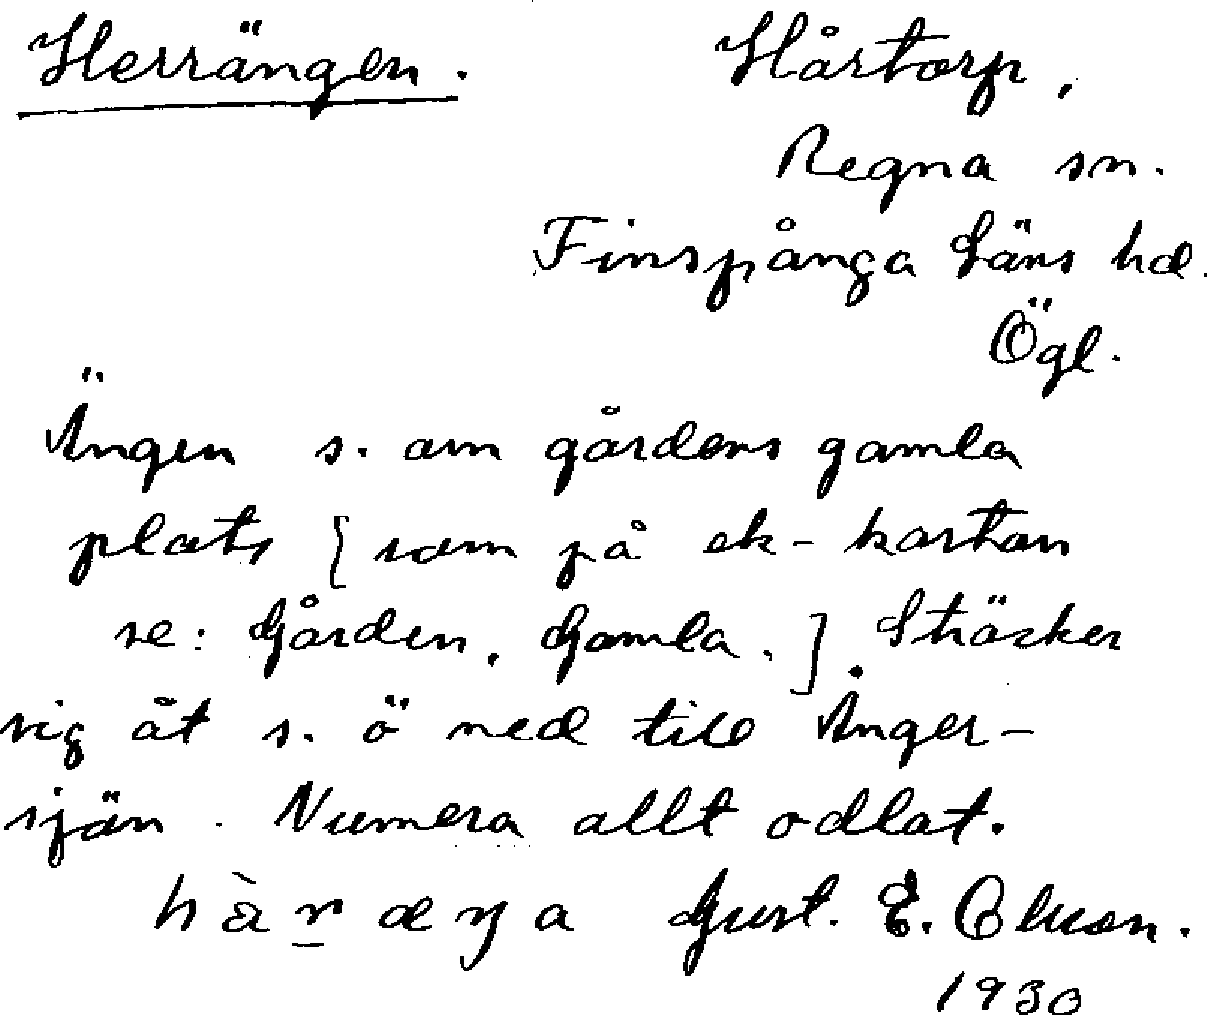 Herrängen. Hårtorp,
Regna sn.
Finspånga läns hd.
Ögl.
Ängen s. om gårdens gamla
plats [som på ek-kartan
se: Gården, Gamla.]. Sträcker
sig åt s. ö ned till Ånger-
sjön. Numera allt odlat.
Gust. E. Olsson.
1930